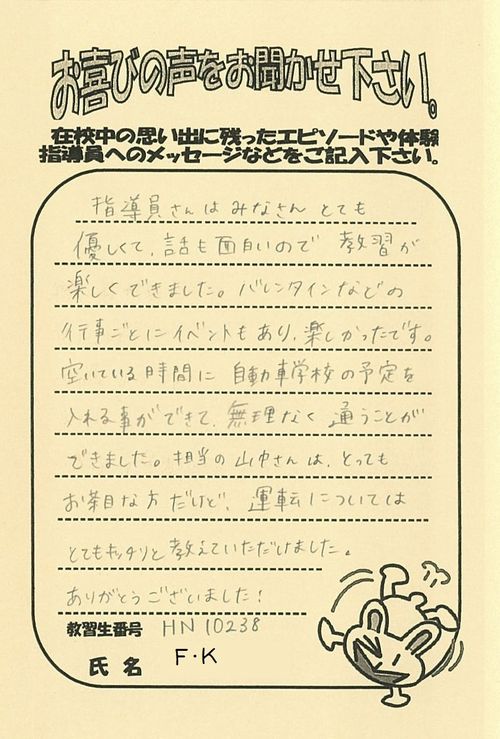 お喜びの声をお聞かせ下さい。
在校中の思い出に残ったエピソードや体験
指導員へのメッセージなどをご記入下さい。
指導員さんはみなさんとても
優しくて、話も面白いので教習が
楽しくできました。バレンタインなどの
行事ごとにイベントもあり、楽しかったです。
空いている時間に自動車学校の予定を
入れる事ができて、無理なく通うことが
できました。担当の山中さんは、とっても
お茶目な方だけど、運転については
とてもキッチリと教えていただけました。
ありがとうございました!
教習生番号 HN10238
氏名 F・K